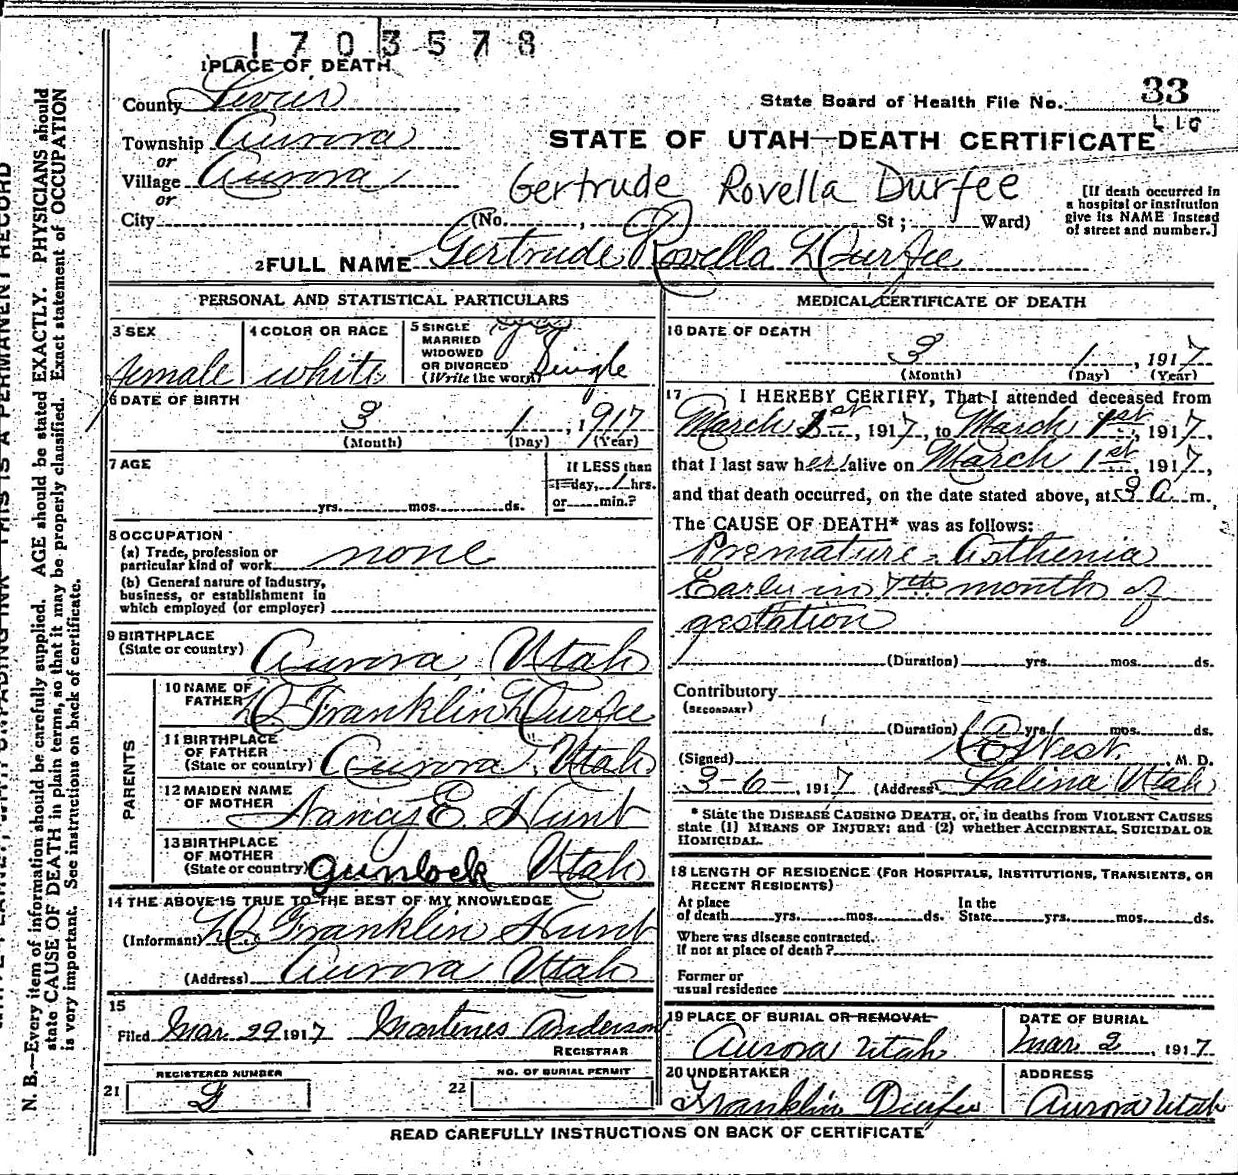 1703578
1 PLACE OF DEATH
County Sevier
State Board of Health File No. 33
Township Aurora
STATE OF UTAH—DEATH CERTIFICATE
or
Village Aurora
or
Gertrude Rovella Durfee
City (No. , St ; Ward)
[If death occurred in
a hospital or institution
give its NAME instead
of street and number.]
2 FULL NAME Gertrude Rovella Durfee
PERSONAL AND STATISTICAL PARTICULARS
3 SEX
female
4 COLOR OR RACE
white
5 SINGLE
MARRIED
WIDOWED
OR DIVORCED
(Write the word)
Single
6 DATE OF BIRTH
3 1, 1917
(Month) (Day) (Year)
7 AGE
yrs. mos. ds.
If LESS than
1 day, 1 hrs.
or min.?
8 OCCUPATION
(a) Trade, profession or
particular kind of work none
(b) General nature of industry,
business, or establishment in
which employed (or employer)
9 BIRTHPLACE
(State or country) Aurora, Utah
PARENTS
10 NAME OF
FATHER Franklin Durfee
11 BIRTHPLACE
OF FATHER
(State or country) Aurora, Utah
12 MAIDEN NAME
OF MOTHER Nancy E. Hunt
13 BIRTHPLACE
OF MOTHER
(State or country) Gunlock Utah
14 THE ABOVE IS TRUE TO THE BEST OF MY KNOWLEDGE
(Informant) Franklin Hunt
(Address) Aurora Utah
15
Filed Mar 29 1917 Martines Anderson
REGISTRAR
REGISTERED NUMBER
21
NO. OF BURIAL PERMIT
22
MEDICAL CERTIFICATE OF DEATH
16 DATE OF DEATH
3 1, 1917
(Month) (Day) (Year)
17 I HEREBY CERTIFY, That I attended deceased from
March 1st, 1917, to March 1st, 1917,
that I last saw her alive on March 1st, 1917,
and that death occurred, on the date stated above, at 3 a m.
The CAUSE OF DEATH* was as follows:
Premature - Asthenia
Early in 7th month of
gestation
(Duration) yrs. mos. ds.
Contributory
(SECONDARY)
(Duration) yrs. mos. ds.
(Signed) West. M. D.
3-6-, 1917 (Address) Salina Utah
* State the DISEASE CAUSING DEATH, or, in deaths from VIOLENT CAUSES
state (1) MEANS OF INJURY; and (2) whether ACCIDENTAL, SUICIDAL OR
HOMICIDAL.
18 LENGTH OF RESIDENCE (FOR HOSPITALS, INSTITUTIONS, TRANSIENTS, OR
RECENT RESIDENTS)
At place
of death yrs. mos. ds.
In the
State yrs. mos. ds.
Where was disease contracted.
if not at place of death?
Former or
usual residence
19 PLACE OF BURIAL OR REMOVAL
Aurora Utah
DATE OF BURIAL
Mar 2, 1917
20 UNDERTAKER
Franklin Durfee
ADDRESS
Aurora Utah
READ CAREFULLY INSTRUCTIONS ON BACK OF CERTIFICATE
THIS IS A PERMANENT RECORD
N. B.—Every item of information should be carefully supplied. AGE should be stated EXACTLY. PHYSICIANS should
state CAUSE OF DEATH in plain terms, so that it may be properly classified. Exact statement of OCCUPATION
is very important. See instructions on back of certificate.